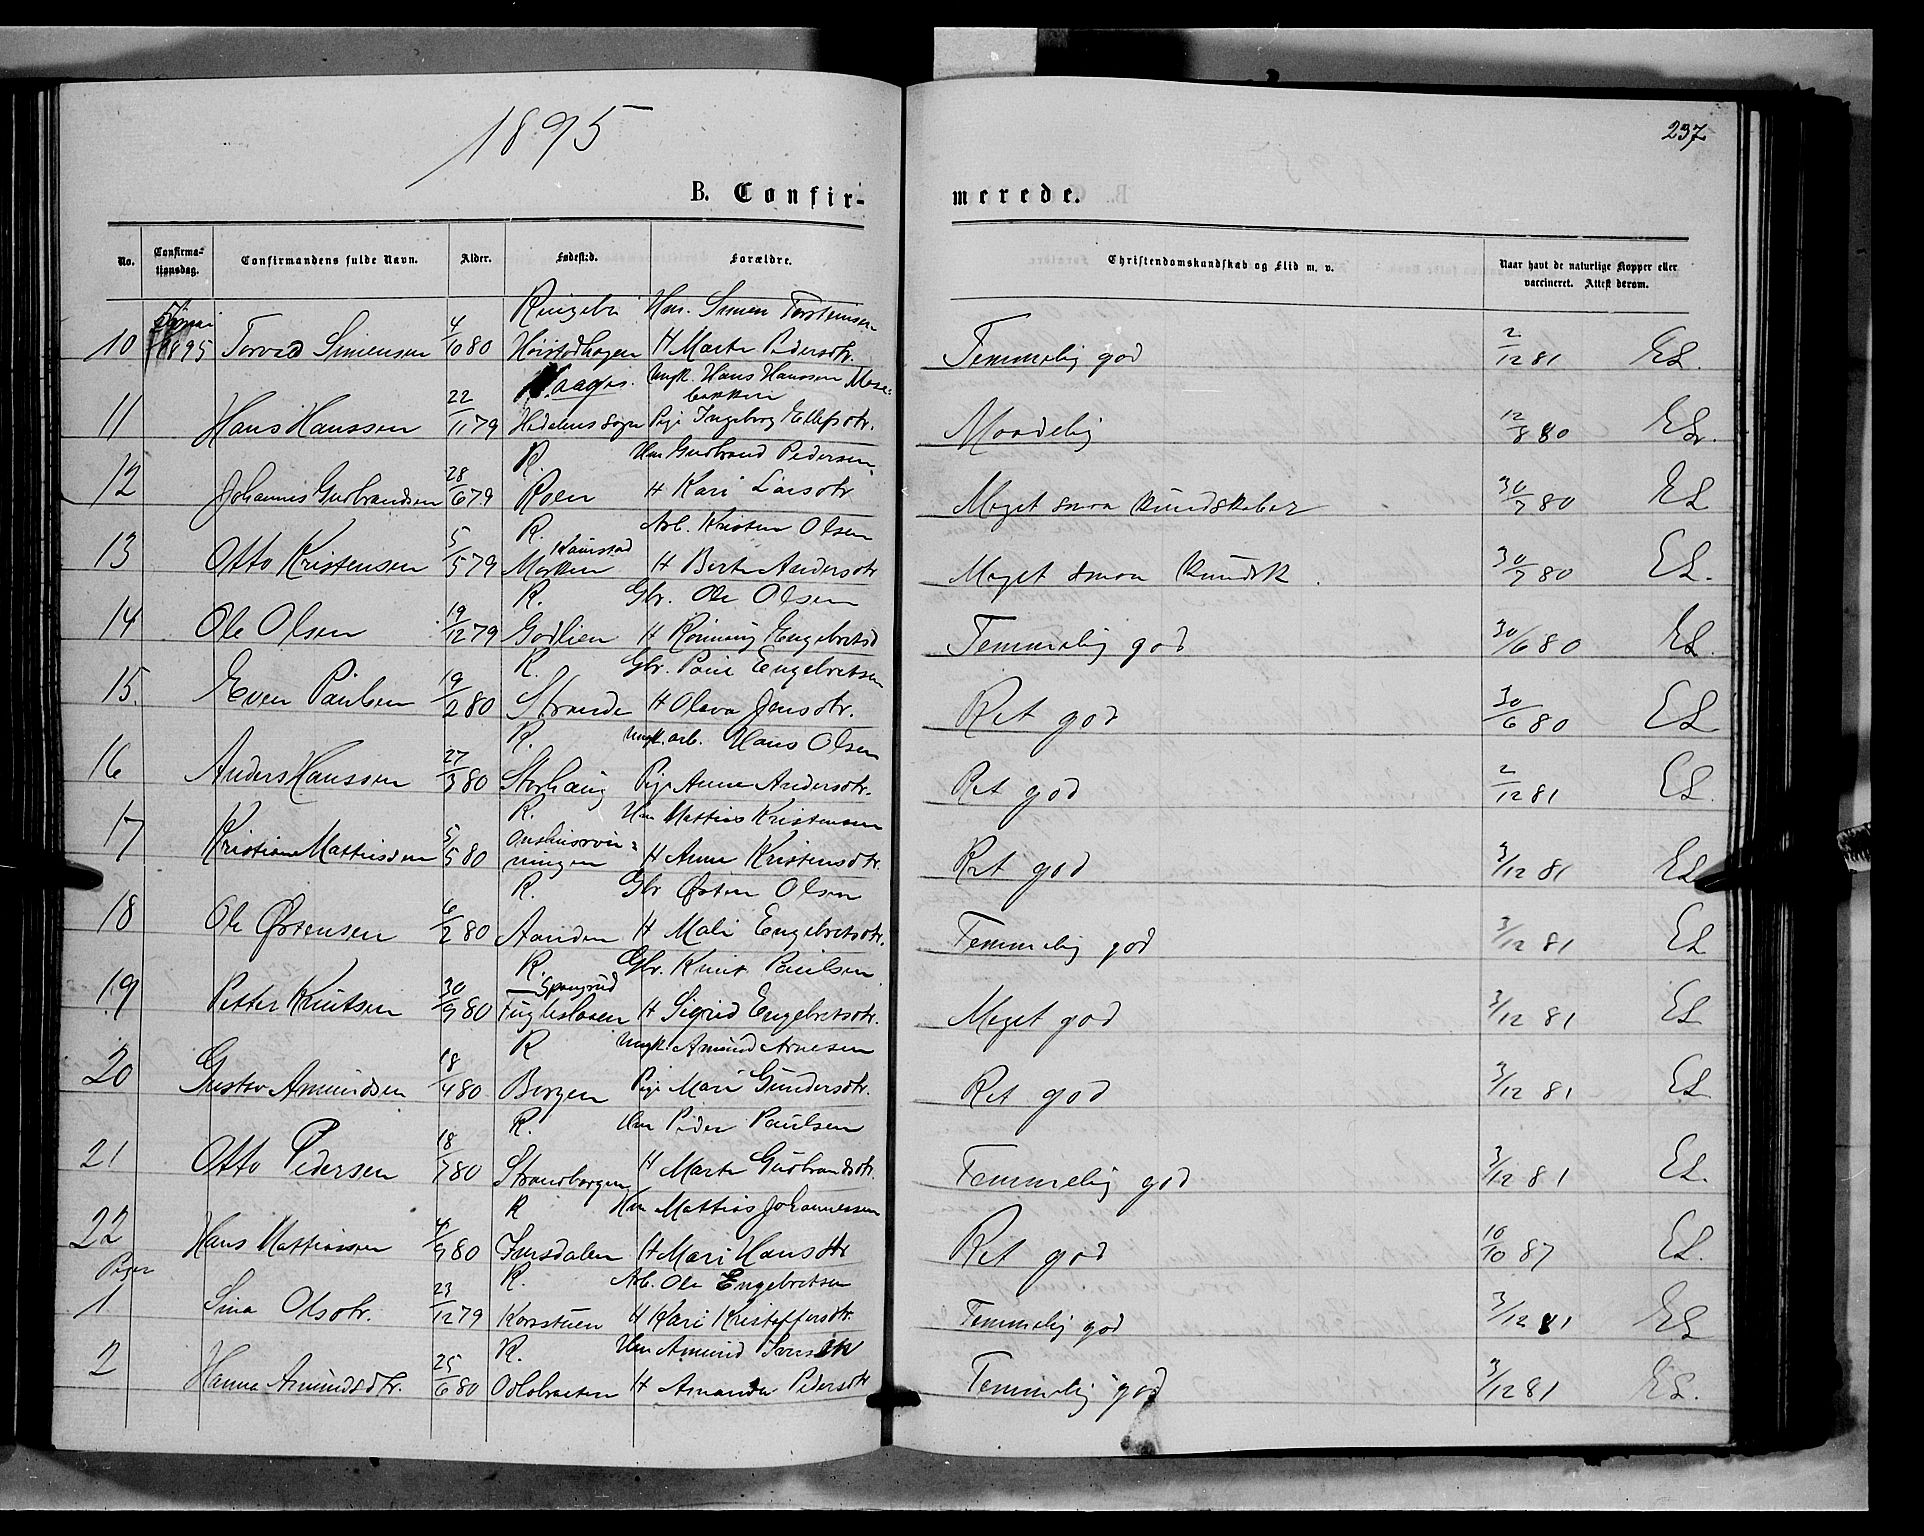 1895
237
B. Confir-
merede.
No. Confirma-tionsdag. Confirmandens fulde Navn. Alder. Fødested. Forældre. Christendomskundskab og Flid m. v. Naar havt de naturlige Kopper eller vaccineret. Attest derom.
Ringebu Hm. Simen Torstensen
10 1895 Torvald Simensen 4/10 80 H Marte Pedersdtr. Temmelig god 2/12 81 ES.
Vaage. Ungk. Hans Hanssen Mose-
bakken
11 Hans Hanssen 22/11 79 Hedalens sogn Pige Ingeborg Ellefsdtr. Maadelig 12/8 80 ES.
R. Hm Gudbrand Pedersen
12 Johannes Gudbrandsen 28/6 79 Roen H Kari Larsdtr Meget smaa kundskaber 30/7 80 ES
R. Arb. Kristen Olsen
13 Otto Kristensen 5/5 79 Kaurstad Marken H Berte Andersdtr Meget smaa kundsk. 30/7 80 ES.
R. Gbr. Ole Olsen
14 Ole Olsen 19/12 79 Godlien H Rønnaug Engebretsd Temmelig god 30/6 80 ES.
R. Gbr. Paul Engebretsen
15. Even Paulsen 19/2 80 Strande H Olava Jensdtr. Ret god 30/6 80 ES
R. Ungk. arb. Hans Olsen
16 Anders Hanssen 27/3 80 Storhaug Pige Anne Andersdtr. Ret god 2/12 81 ES.
R. Hm Mattias Kristensen
17 Kristian Mattiesen 5/5 80 H Anne Kristensdtr. Ret god 3/12 81 ES
R. Gbr Østen Olsen
18 Ole Østensen 6/2 80 Aanden H Mali Engebretsdtr. Temmelig god 3/12 81 ES
R. Gbr. Knut Paulsen
19 Petter Knutsen 30/9 80 Spangrud Fugleslaaen H Sigrid Engebretsdtr. Meget god 3/12 81 ES
R Ungk. Amund Arnesen
20 Gustav Amundsen 18/4 80 Borgen Pige Mari Gundersdtr. Ret god 3/12 81 ES
R. Hm Peder Paulsen
21 Otto Pedersen 18/7 80 Strandborgen H Marte Gudbrandsdtr. Temmelig god 3/12 81 ES.
R Hm Mattias Johannessen
22 Hans Mattiassen 4/9 80 Jursdalen H Mari Hansdtr Ret god 10/10 87 ES.
Piger
R. Arb. Ole Engebretsen
1 Sina Olsdtr. 23/12 79 Korsstuen H Kari Kristoffersdtr. Temmelig god 3/12 81 ES
R. Hm Amund Iversen
2 Hanna Amundsdtr. 25/6 80 Odlobraaten H Amanda Pedersdtr Temmelig god 3/12 81 ES.